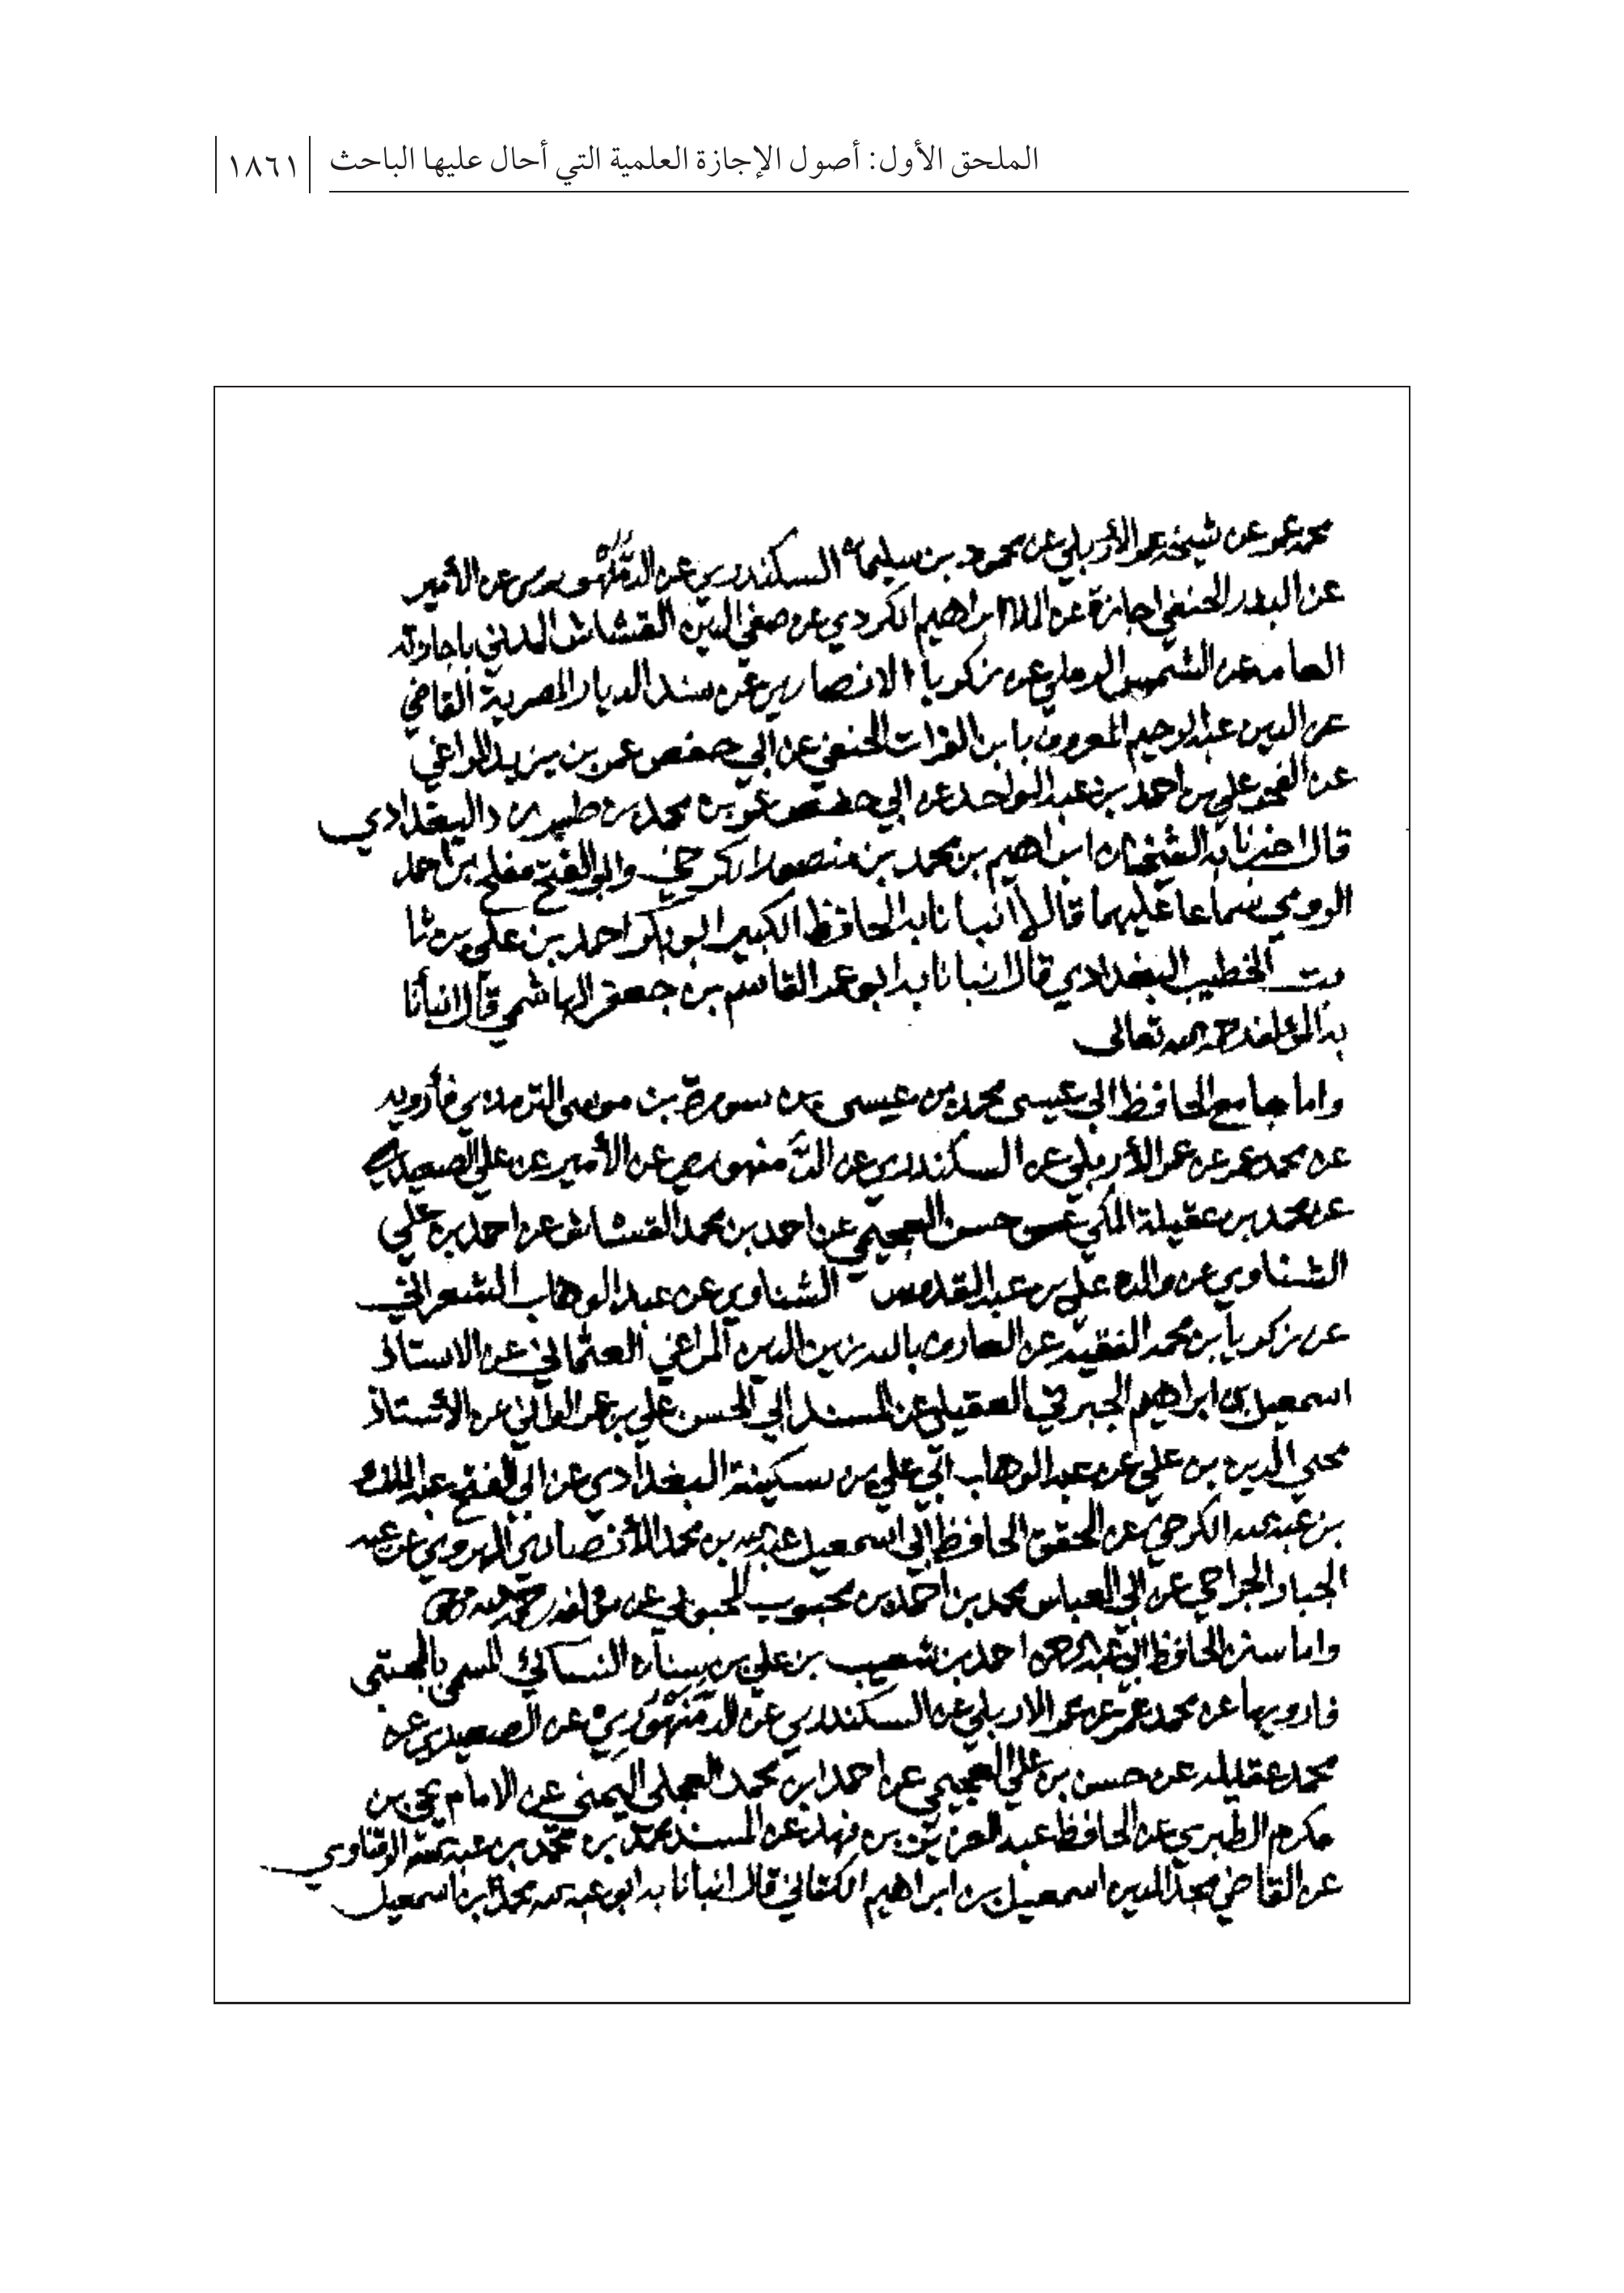 الملحق الأول: أصول الإجازة العلمية التي أحال عليها الباحث ١٨٦١
محمد عمر عن شيخه عمر الأربلي عن محمود بن سليمان السكندري عن الدمنهوري عن الأمير
عن البدر الحنفي اجازة عن الملا ابراهيم الكردي عن صفي الدين القشاشي المدني باجازته
العامه عن الشمس الرملي عن زكريا الانصاري عن مسند الديار المصرية القاضي
عز الدين عبد الرحيم المعروف بابن الفرات الحنفي عن ابي حفص عمر بن يزيد المراغي
عن الفخر علي بن احمد بن عبد الواحد عن ابي حفص عمر بن محمد بن طبرز د البغدادي
قال اخبرنا به الشيخان ابراهيم بن محمد بن منصور الكرخي وابو الفتح مفلح بن احمد
الرومي سماعا عليهما قالا انبانا به الحافظ الكبير ابو بكر احمد بن علي بن ثا
بت الخطيب البغدادي قال انبانا به ابو عمر القاسم بن جعفر الهاشمي قال انبأنا
به المؤلف رحمه الله تعالى
واما جامع الحافظ ابي عيسى محمد بن عيسى بن سورة بن موسى الترمذي فأرويه
عن محمد عمر عن عمر الأربلي عن السكندري عن الدمنهوري عن الأمير عن علي الصعيدي
عن محمد بن عقيلة المكي عن حسن العجيمي عن احمد بن محمد القشاشي عن احمد بن علي
الشناوي عن والده علي بن عبد القدوس الشناوي عن عبد الوهاب الشعراني
عن زكريا بن محمد الفقيه عن العارف بالله زين الدين المراغي العثماني عن الاستاذ
اسمعيل بن ابراهيم الجبرتي العقيلي عن المسند ابي الحسن علي بن عمر الواني عن الأستاذ
محيي الدين بن علي عن عبد الوهاب ابي علي بن سكينة البغدادي عن ابي الفتح عبد الملك
بن عبد الله الكرخي عن المحقق الحافظ ابي اسمعيل عبد الله بن محمد الأنصاري الهروي عن عبد
الجبار الجراحي عن ابي العباس محمد بن احمد بن محبوب المحبوبي عن مؤلفه رحمه الله
واما سنن الحافظ ابي عبد الرحمن احمد بن شعيب بن علي بن سنان النسائي المسمى بالمجتبى
فارويها عن محمد عمر عن عمر الاربلي عن السكندري عن الدمنهوري عن الصعيدي عن
محمد عقيله عن حسن بن علي العجيمي عن احمد ابن محمد العجلي اليمني عن الامام يحيى بن
مكرم الطبري عن الحافظ عبد العزيز بن فهد عن المسند محمد بن محمد بن عبد الله الزفتاوي
عن القاضي مجد الدين اسمعيل بن ابراهيم الكناني قال انبانا به ابو عبد الله محمد ابن اسمعيل